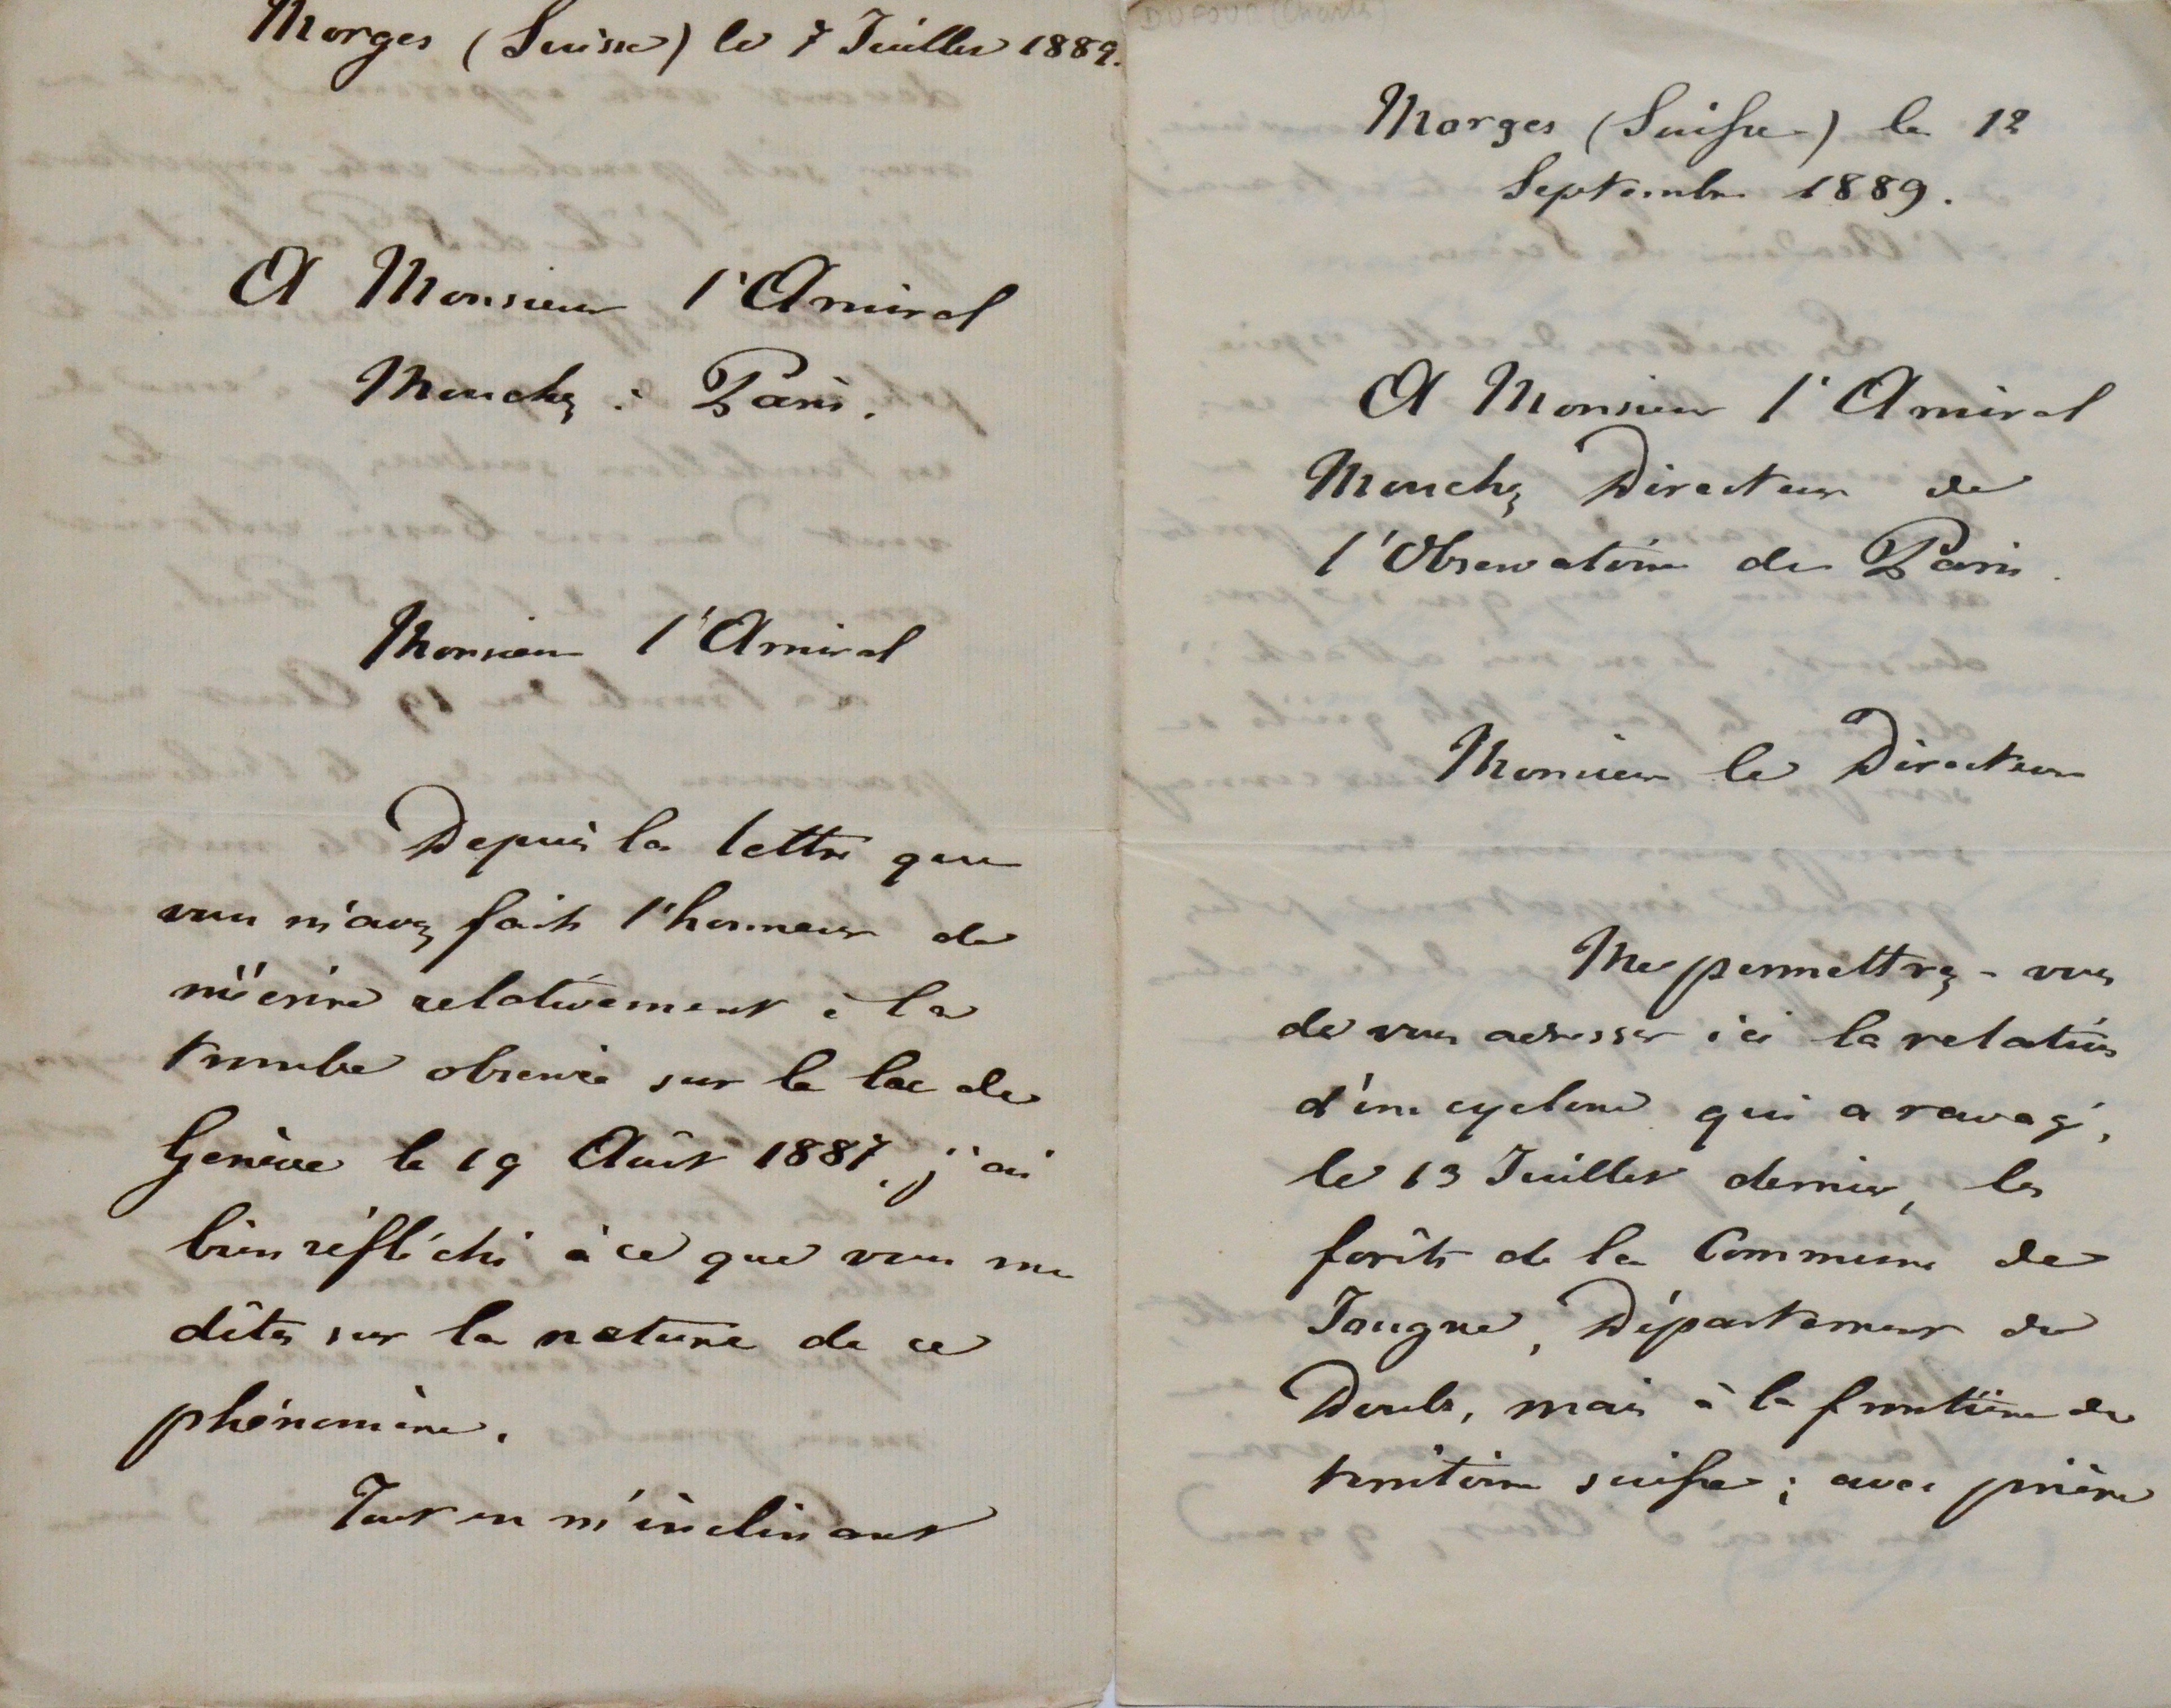 Morges (Suisse) le 7 Juillet 1889.
A Monsieur l'Amiral
Mouchez à Paris.
Monsieur l'Amiral
Depuis la lettre que
vous m'avez fait l'honneur de
m'écrire relativement à la
trombe observée sur le lac de
Genève le 19 Août 1887, j'ai
bien réfléchi à ce que vous me
dîtes sur la nature de ce
phénomène.
Tout en m'inclinant
DUFOUR (Charles)
Morges (Suisse) le 12
Septembre 1889.
A Monsieur l'Amiral
Mouchez Directeur de
l'Observatoire de Paris.
Monsieur le Directeur
Me permettrez-vous
de vous adresser ici la relation
d'un cyclone qui a ravagé,
le 13 Juillet dernier, les
forêts de la Commune de
Jougne, Département du
Doubs, mais à la frontière du
territoire suisse; avec prière